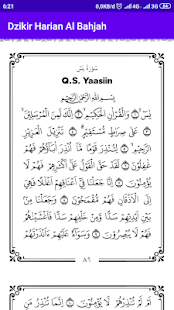 6:21
0,0KB/d
4G
4G
Dzikir Harian Al Bahjah
سورة يس
Q.S. Yaasiin
بِسْمِ اللهِ الرَّحْمٰنِ الرَّحِيْمِ
يٰسٓ ۝ وَالْقُرْآنِ الْحَكِيْمِ ۝ اِنَّكَ لَمِنَ الْمُرْسَلِيْنَ ۝
عَلٰى صِرَاطٍ مُسْتَقِيْمٍ ۝ تَنْزِيْلَ الْعَزِيْزِ
الرَّحِيْمِ ۝ لِتُنْذِرَ قَوْمًا مَا اُنْذِرَ اٰبَاؤُهُمْ فَهُمْ
غٰفِلُوْنَ ۝ لَقَدْ حَقَّ الْقَوْلُ عَلٰى اَكْثَرِهِمْ فَهُمْ
لَا يُؤْمِنُوْنَ ۝ اِنَّا جَعَلْنَا فِيْ اَعْنَاقِهِمْ اَغْلٰلًا فَهِيَ
اِلَى الْاَذْقَانِ فَهُمْ مُقْمَحُوْنَ ۝ وَجَعَلْنَا مِنْ
بَيْنِ اَيْدِيْهِمْ سَدًّا وَمِنْ خَلْفِهِمْ سَدًّا فَاَغْشَيْنٰهُمْ
فَهُمْ لَا يُبْصِرُوْنَ ۝ وَسَوَاءٌ عَلَيْهِمْ ءَاَنْذَرْتَهُمْ
٨٦
اَمْ لَمْ تُنْذِرْهُمْ لَا يُؤْمِنُوْنَ ۝ اِنَّمَا تُنْذِرُ مَنِ